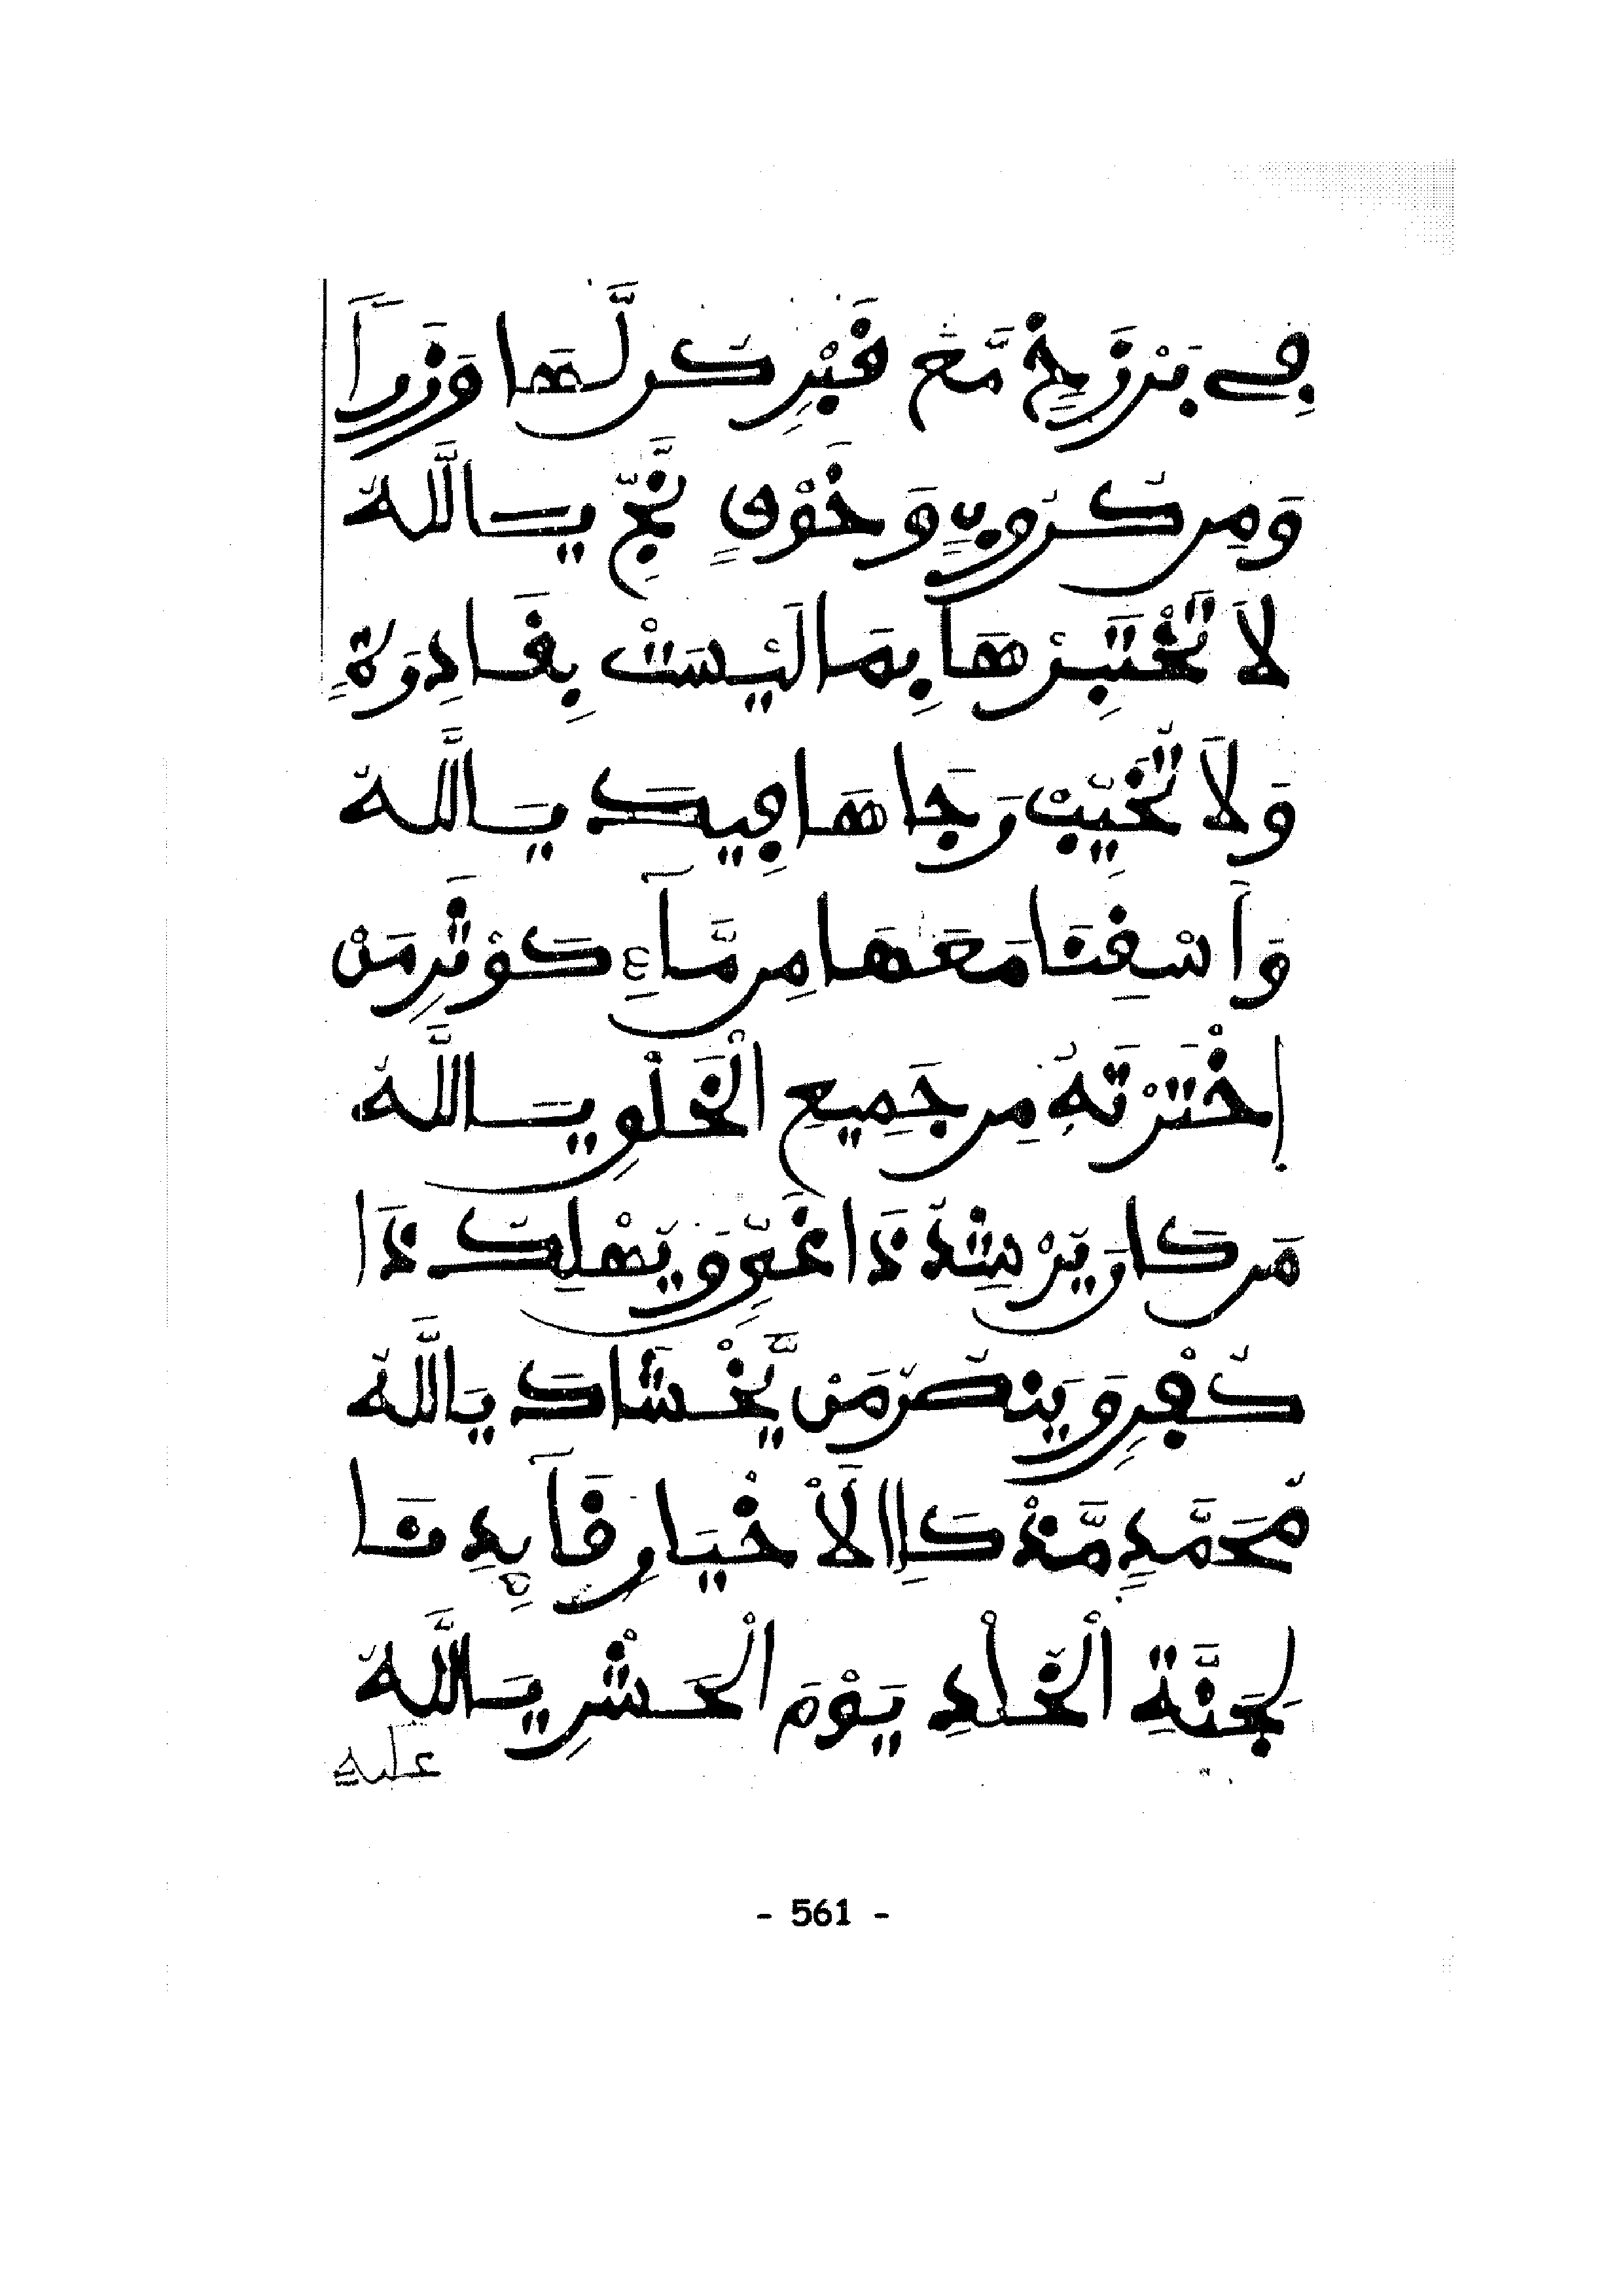 فِي بَرْزَخٍ مَّعَ قَبْرٍ كُن لَّهَا وَزَراً
وَمِن كُرُوبٍ وَخَوْفٍ نَّجِّ يَا اللَّهُ
لَا تَخْتَبِرْهَا بِمَا لَيْسَتْ بِقَادِرَةٍ
وَلَا تُخَيِّبْ رَجَاهَا فِيكَ يَا اللَّهُ
وَاسْقِنَا مَعَهَا مِن مَّآءِ كَوْثَرِ مَنْ
إِخْتَرْتَهُ مِن جَمِيعِ الْخَلْقِ يَا اللَّهُ
مَن كَانَ يُرْشِدُ ذَا غَيٍّ وَيُهْلِكُ ذَا
كُفْرٍ وَيَنصُرُ مَنْ يَّخْشَاكَ يَا اللَّهُ
مُحَمَّدٍ مَّنْ كَالْأَخْيَارِ قَآئِدِنَا
لِجَنَّةِ الْخُلْدِ يَوْمَ الْحَشْرِ يَا اللَّهُ
عليه
- 561 -